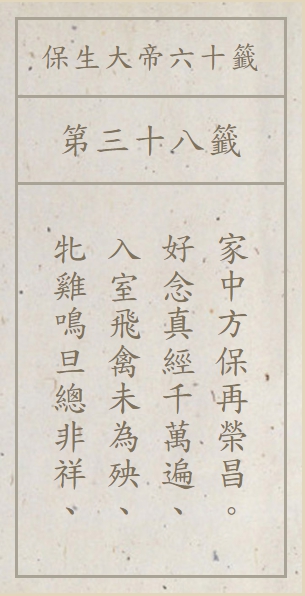 保生大帝六十籤
第三十八籤
牝雞鳴旦總非祥、
入室飛禽未為殃、
好念真經千萬遍、
家中方保再榮昌。